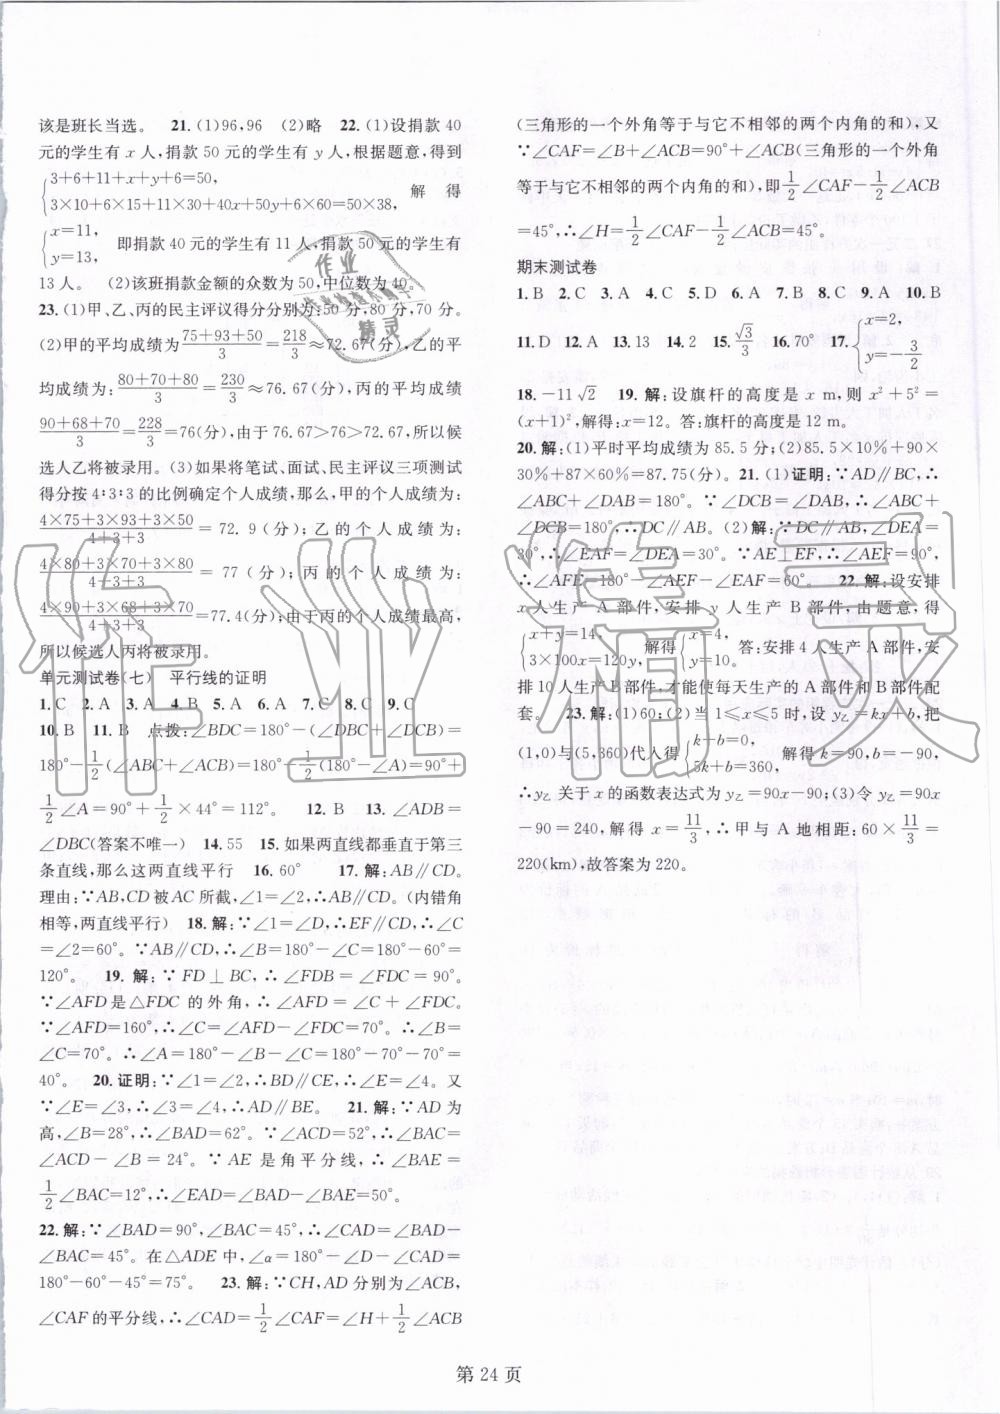 该是班长当选。 21. (1)96,96 (2)略 22. (1)设捐款 40
元的学生有 x 人,捐款 50 元的学生有 y 人,根据题意,得到
{3+6+11+x+y+6=50, 解 得
3×10+6×15+11×30+40x+50y+6×60=50×38,
{x=11, 即捐款 40 元的学生有 11 人,捐款 50 元的学生有
y=13,
13 人。 (2)该班捐款金额的众数为 50,中位数为 40。
23. (1)甲、乙、丙的民主评议得分分别为:50 分,80 分,70 分。
(2)甲的平均成绩为 75+93+50/3 = 218/3 ≈72.67(分),乙的平
均成绩为: 80+70+80/3 = 230/3 ≈76.67(分),丙的平均成绩
90+68+70/3 = 228/3 =76(分),由于 76.67>76>72.67,所以候
选人乙将被录用。 (3)如果将笔试、面试、民主评议三项测试
得分按 4∶3∶3 的比例确定个人成绩,那么,甲的个人成绩为:
4×75+3×93+3×50/4+3+3 = 72.9(分);乙的个人成绩为:
4×80+3×70+3×80/4+3+3 = 77(分);丙的个人成绩为:
4×90+3×68+3×70/4+3+3 =77.4(分);由于丙的个人成绩最高,
所以候选人丙将被录用。
单元测试卷(七) 平行线的证明
1. C 2. A 3. A 4. B 5. A 6. A 7. C 8. C 9. C
10. B 11. B 点拨:∠BDC=180°-(∠DBC+∠DCB)=
180°-1/2(∠ABC+∠ACB)=180°-1/2(180°-∠A)=90°+
1/2∠A=90°+1/2×44°=112°。 12. B 13. ∠ADB=
∠DBC(答案不唯一) 14. 55 15. 如果两直线都垂直于第三
条直线,那么这两直线平行 16. 60° 17. 解:AB∥CD.
理由:∵AB,CD 被 AC 所截,∠1=∠2,∴AB∥CD。(内错角
相等,两直线平行) 18. 解:∵∠1=∠2,∴EF∥CD,∴∠C
=∠2=60°。∵AB∥CD,∴∠B=180°-∠C=180°-60°=
120°。 19. 解:∵FD⊥BC,∴∠FDB=∠FDC=90°。
∵∠AFD 是△FDC 的外角,∴∠AFD=∠C+∠FDC。
∵∠AFD=160°,∴∠C=∠AFD-∠FDC=70°。∴∠B=
∠C=70°。∴∠A=180°-∠B-∠C=180°-70°-70°=
40°。 20. 证明:∵∠1=∠2,∴BD∥CE,∴∠E=∠4。又
∵∠E=∠3,∴∠3=∠4,∴AD∥BE。 21. 解:∵AD 为
高,∠B=28°,∴∠BAD=62°。∵∠ACD=52°,∴∠BAC=
∠ACD-∠B=24°。∵AE 是角平分线,∴∠BAE=
1/2∠BAC=12°,∴∠EAD=∠BAD-∠BAE=50°。
22. 解:∵∠BAD=90°,∠BAC=45°,∴∠CAD=∠BAD-
∠BAC=45°。在△ADE 中,∠α=180°-∠D-∠CAD=
180°-60°-45°=75°。 23. 解:∵CH,AD 分别为∠ACB,
∠CAF 的平分线,∴∠CAD=1/2∠CAF=∠H+1/2∠ACB
(三角形的一个外角等于与它不相邻的两个内角的和),又
∵∠CAF=∠B+∠ACB=90°+∠ACB(三角形的一个外角
等于与它不相邻的两个内角的和),即1/2∠CAF-1/2∠ACB
=45°,∴∠H=1/2∠CAF-1/2∠ACB=45°。
期末测试卷
1. B 2. C 3. A 4. C 5. A 6. D 7. B 8. C 9. A 10. B
11. D 12. A 13. 13 14. 2 15. √3/3 16. 70° 17. {x=2, y=-3/2
18. -11√2 19. 解:设旗杆的高度是 x m,则 x²+5²=
(x+1)²,解得:x=12。答:旗杆的高度是 12 m。
20. 解:(1)平时平均成绩为 85.5 分;(2)85.5×10%+90×
30%+87×60%=87.75(分)。 21. (1)证明:∵AD∥BC,∴
∠ABC+∠DAB=180°。∵∠DCB=∠DAB,∴∠ABC+
∠DCB=180°,∴DC∥AB。 (2)解:∵DC∥AB,∠DEA=
30°,∴∠EAF=∠DEA=30°。∵AE⊥EF,∴∠AEF=90°。
∴∠AFE=180°-∠AEF-∠EAF=60°。 22. 解:设安排
x 人生产 A 部件,安排 y 人生产 B 部件,由题意,得
{x+y=14, 3×100x=120y, 解得{x=4, y=10。 答:安排 4 人生产 A 部件,安
排 10 人生产 B 部件,才能使每天生产的 A 部件和 B 部件配
套。 23. 解:(1)60;(2)当 1≤x≤5 时,设 y乙=kx+b,把
(1,0)与(5,360)代入得{k+b=0, 5k+b=360, 解得 k=90,b=-90,
∴y乙 关于 x 的函数表达式为 y乙=90x-90;(3)令 y乙=90x
-90=240,解得 x=11/3,∴甲与 A 地相距:60×11/3=
220(km),故答案为 220。
第 24 页
作业
精灵
作业精灵